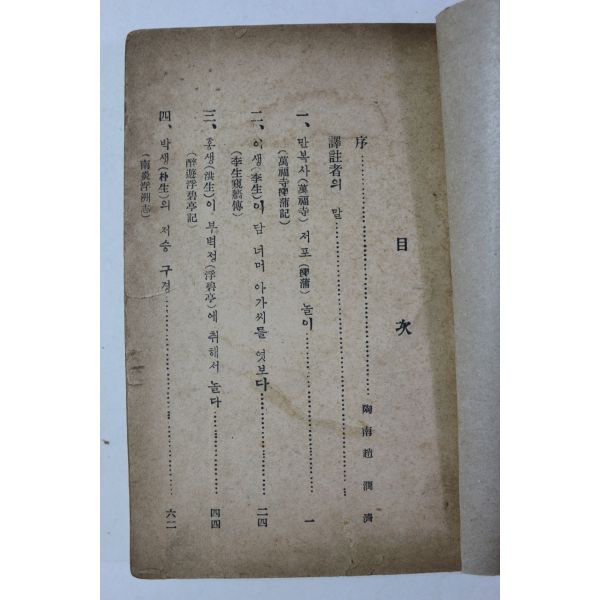 目次
序……………………陶南趙潤濟
譯註者의 말……………………
一、만복사(萬福寺) 저포(樗蒲) 놀이……………………一
(萬福寺樗蒲記)
二、이생(李生)이 담 너머 아가씨를 엿보다……………………二四
(李生窺牆傳)
三、홍생(洪生)이 부벽정(浮碧亭)에 취해서 놀다……………………四四
(醉遊浮碧亭記)
四、박생(朴生)의 저승 구경……………………六二
(南炎浮洲志)